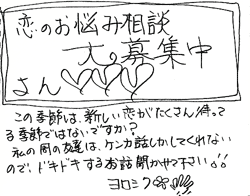 恋のお悩み相談
大。募集中
さん♡♡♡
この季節は、新しい恋がたくさん待って
る季節ではないですか?
私の周の友達は、ケンカ話しかしてくれない
ので、ドキドキするお話聞かせて下さい!!
ヨロシク